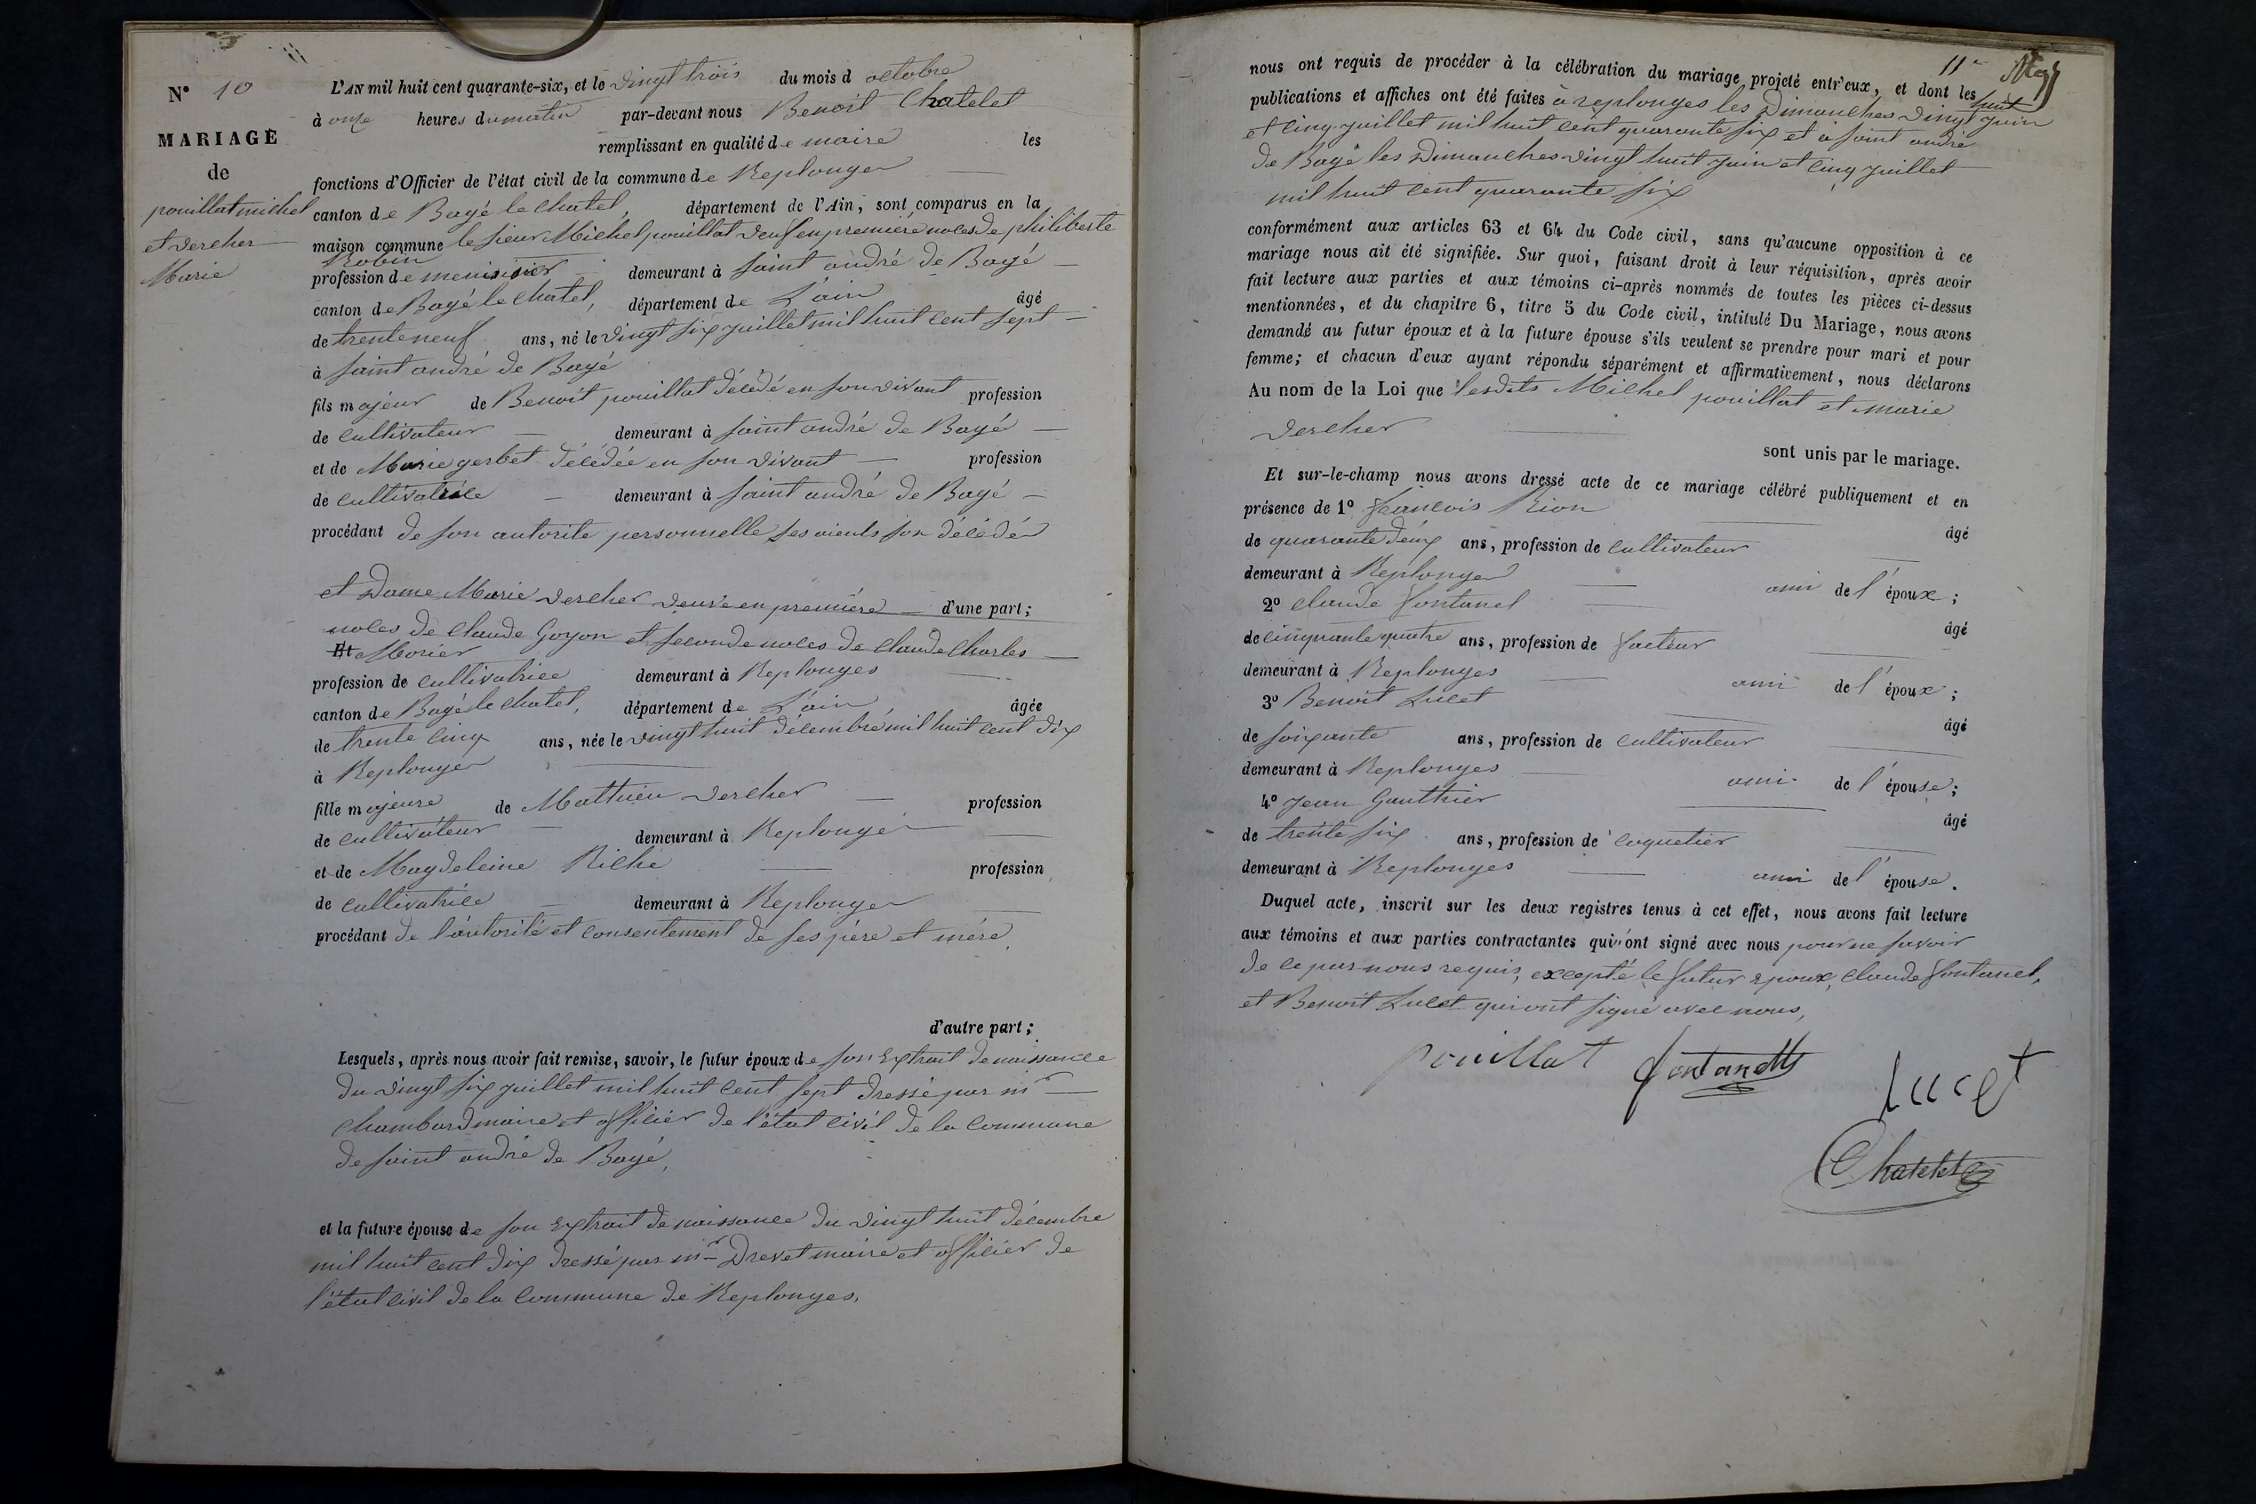 N° 10
MARIAGE
de
pouillat michel
et Vercher
Marie
L'AN mil huit cent quarante-six, et le vingt trois du mois d octobre
à onze heures du matin par-devant nous Benoit Chatelet
remplissant en qualité de maire les
fonctions d'Officier de l'état civil de la commune de Replonges
canton de Bagé le chatel, département de l'Ain, sont comparus en la
maison commune le sieur Michel pouillat veuf en premiére noces de philiberte
Robin
profession de menuisier demeurant à saint andré de Bagé
canton de Bagé le chatel, département de L'ain âgé
de trente neuf ans, né le vingt six juillet mil huit cent sept
à saint andré de Bagé
fils majeur de Benoit pouillat décédé en son vivant profession
de cultivateur demeurant à saint andré de Bagé
et de Marie gerbet décédée en son vivant profession
de cultivatrice demeurant à saint andré de Bagé
procédant de son autorite personnelle ses aieuls son décédés
et Dame Marie Vercher veuve en premiére d'une part;
noces de Claude Goyon et seconde noces de Claude Charles
Et Morier
profession de cultivatrice demeurant à Replonges
canton de Bagé le chatel, département de L'ain âgée
de trente cinq ans, née le vingt huit décembre mil huit cent dix
à Replonges
fille majeure de Mathieu Vercher profession
de cultivateur demeurant à Replonges
et de Magdeleine Riche profession
de cultivatrice demeurant à Replonges
procédant de l'autorité et consentement de ses père et mère
d'autre part;
Lesquels, après nous avoir fait remise, savoir, le futur époux de son Extrait de naissance
du vingt six juillet mil huit cent sept dressé par mr
Chambard maire et officier de l'état civil de la commune
de saint andré de Bagé,
et la future épouse de son Extrait de naissance du vingt huit décembre
mil huit cent dix dressé par mr Drevet maire et officier de
l'état civil de la commune de Replonges,
11e
nous ont requis de procéder à la célébration du mariage projeté entr'eux, et dont les
publications et affiches ont été faites à replonges les Dimanches vingt huit juin
et cinq juillet mil huit cent quarante six et à saint andré
de Bagé les Dimanches vingt huit juin et cinq juillet
mil huit cent quarante six
conformément aux articles 63 et 64 du Code civil, sans qu'aucune opposition à ce
mariage nous ait été signifiée. Sur quoi, faisant droit à leur réquisition, après avoir
fait lecture aux parties et aux témoins ci-après nommés de toutes les pièces ci-dessus
mentionnées, et du chapitre 6, titre 5 du Code civil, intitulé Du Mariage, nous avons
demandé au futur époux et à la future épouse s'ils veulent se prendre pour mari et pour
femme; et chacun d'eux ayant répondu séparément et affirmativement, nous déclarons
Au nom de la Loi que lesdits Michel pouillat et marie
Vercher
sont unis par le mariage.
Et sur-le-champ nous avons dressé acte de ce mariage célébré publiquement et en
présence de 1° françois Rion âgé
de quarante deux ans, profession de cultivateur
demeurant à Replonges ami de l'époux;
2° Claude fontanel âgé
de cinquante quatre ans, profession de facteur
demeurant à Replonges ami de l'époux;
3° Benoit Lucet âgé
de soixante ans, profession de cultivateur
demeurant à Replonges ami de l'épouse;
4° jean Gauthier âgé
de trente six ans, profession de coquetier
demeurant à Replonges ami de l'épouse.
Duquel acte, inscrit sur les deux registres tenus à cet effet, nous avons fait lecture
aux témoins et aux parties contractantes qui n'ont signé avec nous pour ne savoir
de ce par nous requis, excepté le futur époux, Claude fontanel,
et Benoit Lucet qui ont signé avec nous,
pouillat fontanell
Lucet
Chatelet